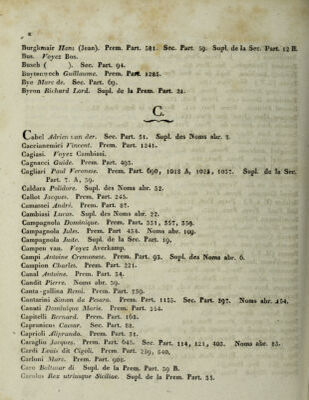 Burgkmair Hans (Jean). Prem. Part. 581. Sec. Part. 59. Supl. de la Sec. Part. 12 B.
Bus. Voyez Bos.
Busch ( ). Sec. Part. 94.
Buytenwech Guillaume. Prem. Part. 1285.
Bye Marc de. Sec. Part. 69.
Byron Richard Lord. Supl. de la Prem. Part. 24.
C.
Cabel Adrien van der. Sec. Part. 51. Supl. des Noms abr. 7.
Caccianemici Vincent. Prem. Part. 1241.
Cagiasi. Voyez Cambiasi.
Cagnacci Guide. Prem. Part. 493.
Cagliari Paul Veronese. Prem. Part. 690, 1018 A, 1024, 1057. Supl. de la Sec.
Part. 7. A, 59.
Caldara Polidore. Supl. des Noms abr. 52.
Callot Jacques. Prem. Part. 245.
Camassei André. Prem. Part. 87.
Cambiasi Lucas. Supl. des Noms abr. 22.
Campagnola Dominique. Prem. Part. 331, 557, 559.
Campagnola Jules. Prem. Part 454. Noms abr. 109.
Campagnola Juste. Supl. de la Sec. Part. 19.
Campen van. Voyez Averkamp.
Campi Antoine Cremonese. Prem. Part. 93. Supl. des Noms abr. 6.
Campion Charles. Prem. Part. 221.
Canal Antoine. Prem. Part. 54.
Candit Pierre. Noms abr. 59.
Canta-gallina Remi. Prem. Part. 759.
Cantarini Simon de Pesaro. Prem. Part. 1135. Sec. Part. 197. Noms abr. 164.
Canuti Dominique Marie. Prem. Part. 254.
Capitelli Bernard. Prem. Part. 162.
Capranicus Caesar. Sec. Part. 88.
Caprioli Aliprando. Prem. Part. 51.
Caraglio Jacques. Prem. Part. 645. Sec. Part. 114, 121, 403. Noms abr. 85.
Cardi Louis dit Cigoli. Prem. Part. 259, 540.
Carloni Marc. Prem. Part. 905.
Caro Baltasar di Supl. de la Prem. Part. 59 B.
Carolus Rex utriusque Siciliae. Supl. de la Prem. Part. 35.